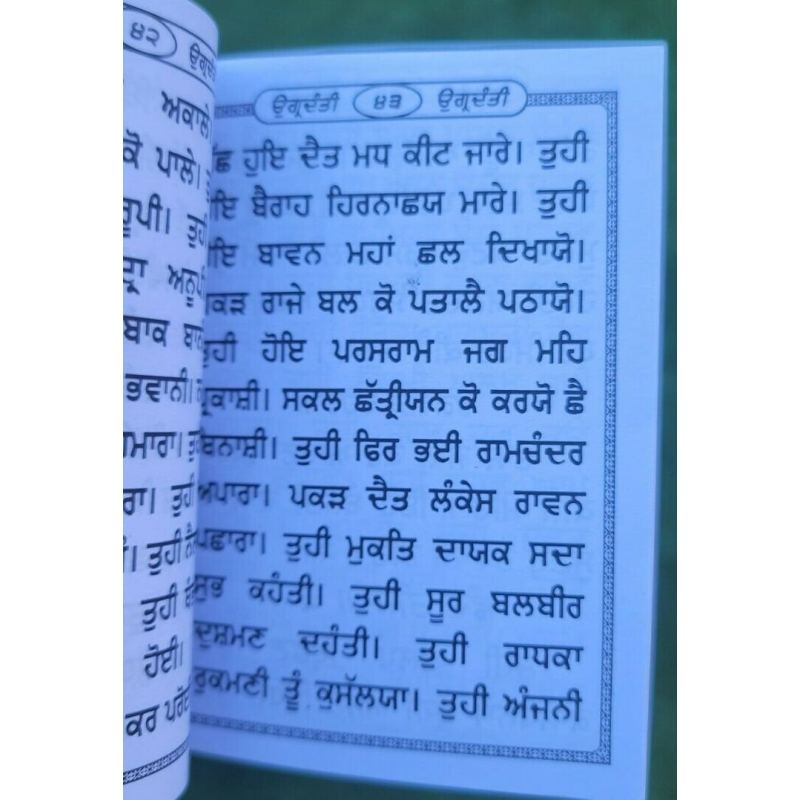 ੪੨ 
ਅਕਾਲੇ
ਕੋ ਪਾਲੇ।
ਤੁਹੀ
ਅਨੂਪੀ
ਬਾਕ
ਭਵਾਨੀ।
ਤੁਹੀ
ਤੁਹੀ
ਤੁਹੀ
ਹੋਈ।
ਕਰ
ਉਗ੍ਰਦੰਤੀ ੪੩ ਉਗ੍ਰਦੰਤੀ
ਹੁਇ ਦੈਤ ਮਧ ਕੀਟ ਜਾਰੇ। ਤੁਹੀ
ਬੈਰਾਹ ਹਿਰਨਾਛਯ ਮਾਰੇ। ਤੁਹੀ
ਬਾਵਨ ਮਹਾਂ ਛਲ ਦਿਖਾਯੋ।
ਰਾਜੇ ਬਲ ਕੋ ਪਤਾਲੈ ਪਠਾਯੋ।
ਤੁਹੀ ਹੋਇ ਪਰਸਰਾਮ ਜਗ ਮਹਿ
ਸਕਲ ਛੱਤ੍ਰੀਯਨ ਕੋ ਕਰਯੋ ਛੈ
ਬਨਾਸ਼ੀ। ਤੁਹੀ ਫਿਰ ਭਈ ਰਾਮਚੰਦਰ
ਅਪਾਰਾ। ਪਕੜ ਦੈਤ ਲੰਕੇਸ ਰਾਵਨ
ਪਛਾਰਾ। ਤੁਹੀ ਮੁਕਤਿ ਦਾਯਕ ਸਦਾ
ਸੁਭ ਕਹੰਤੀ। ਤੁਹੀ ਸੂਰ ਬਲਬੀਰ
ਦੁਸ਼ਮਣ ਦਹੰਤੀ। ਤੁਹੀ ਰਾਧਕਾ
ਰੁਕਮਣੀ ਤੂੰ ਕੁਸੱਲਯਾ। ਤੁਹੀ ਅੰਜਨੀ